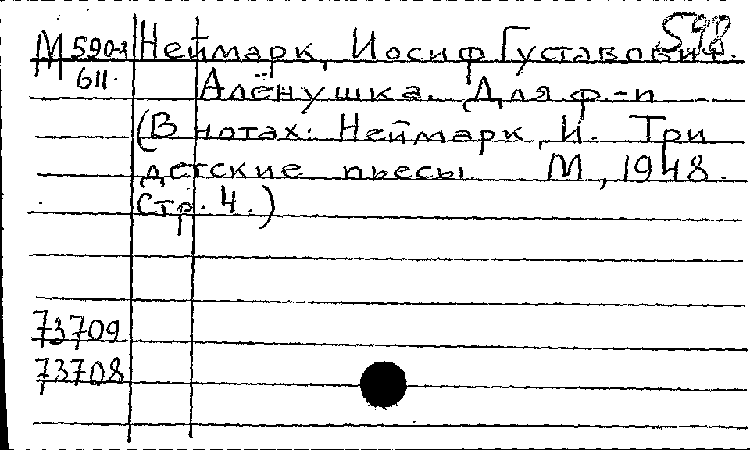 598
М 590-1 Неймарк, Иосиф Густавович.
611. Алёнушка. Для ф.-п
(В нотах: Неймарк, И. Три
детские пьесы М, 1948.
Стр. 4.)
73709
73708